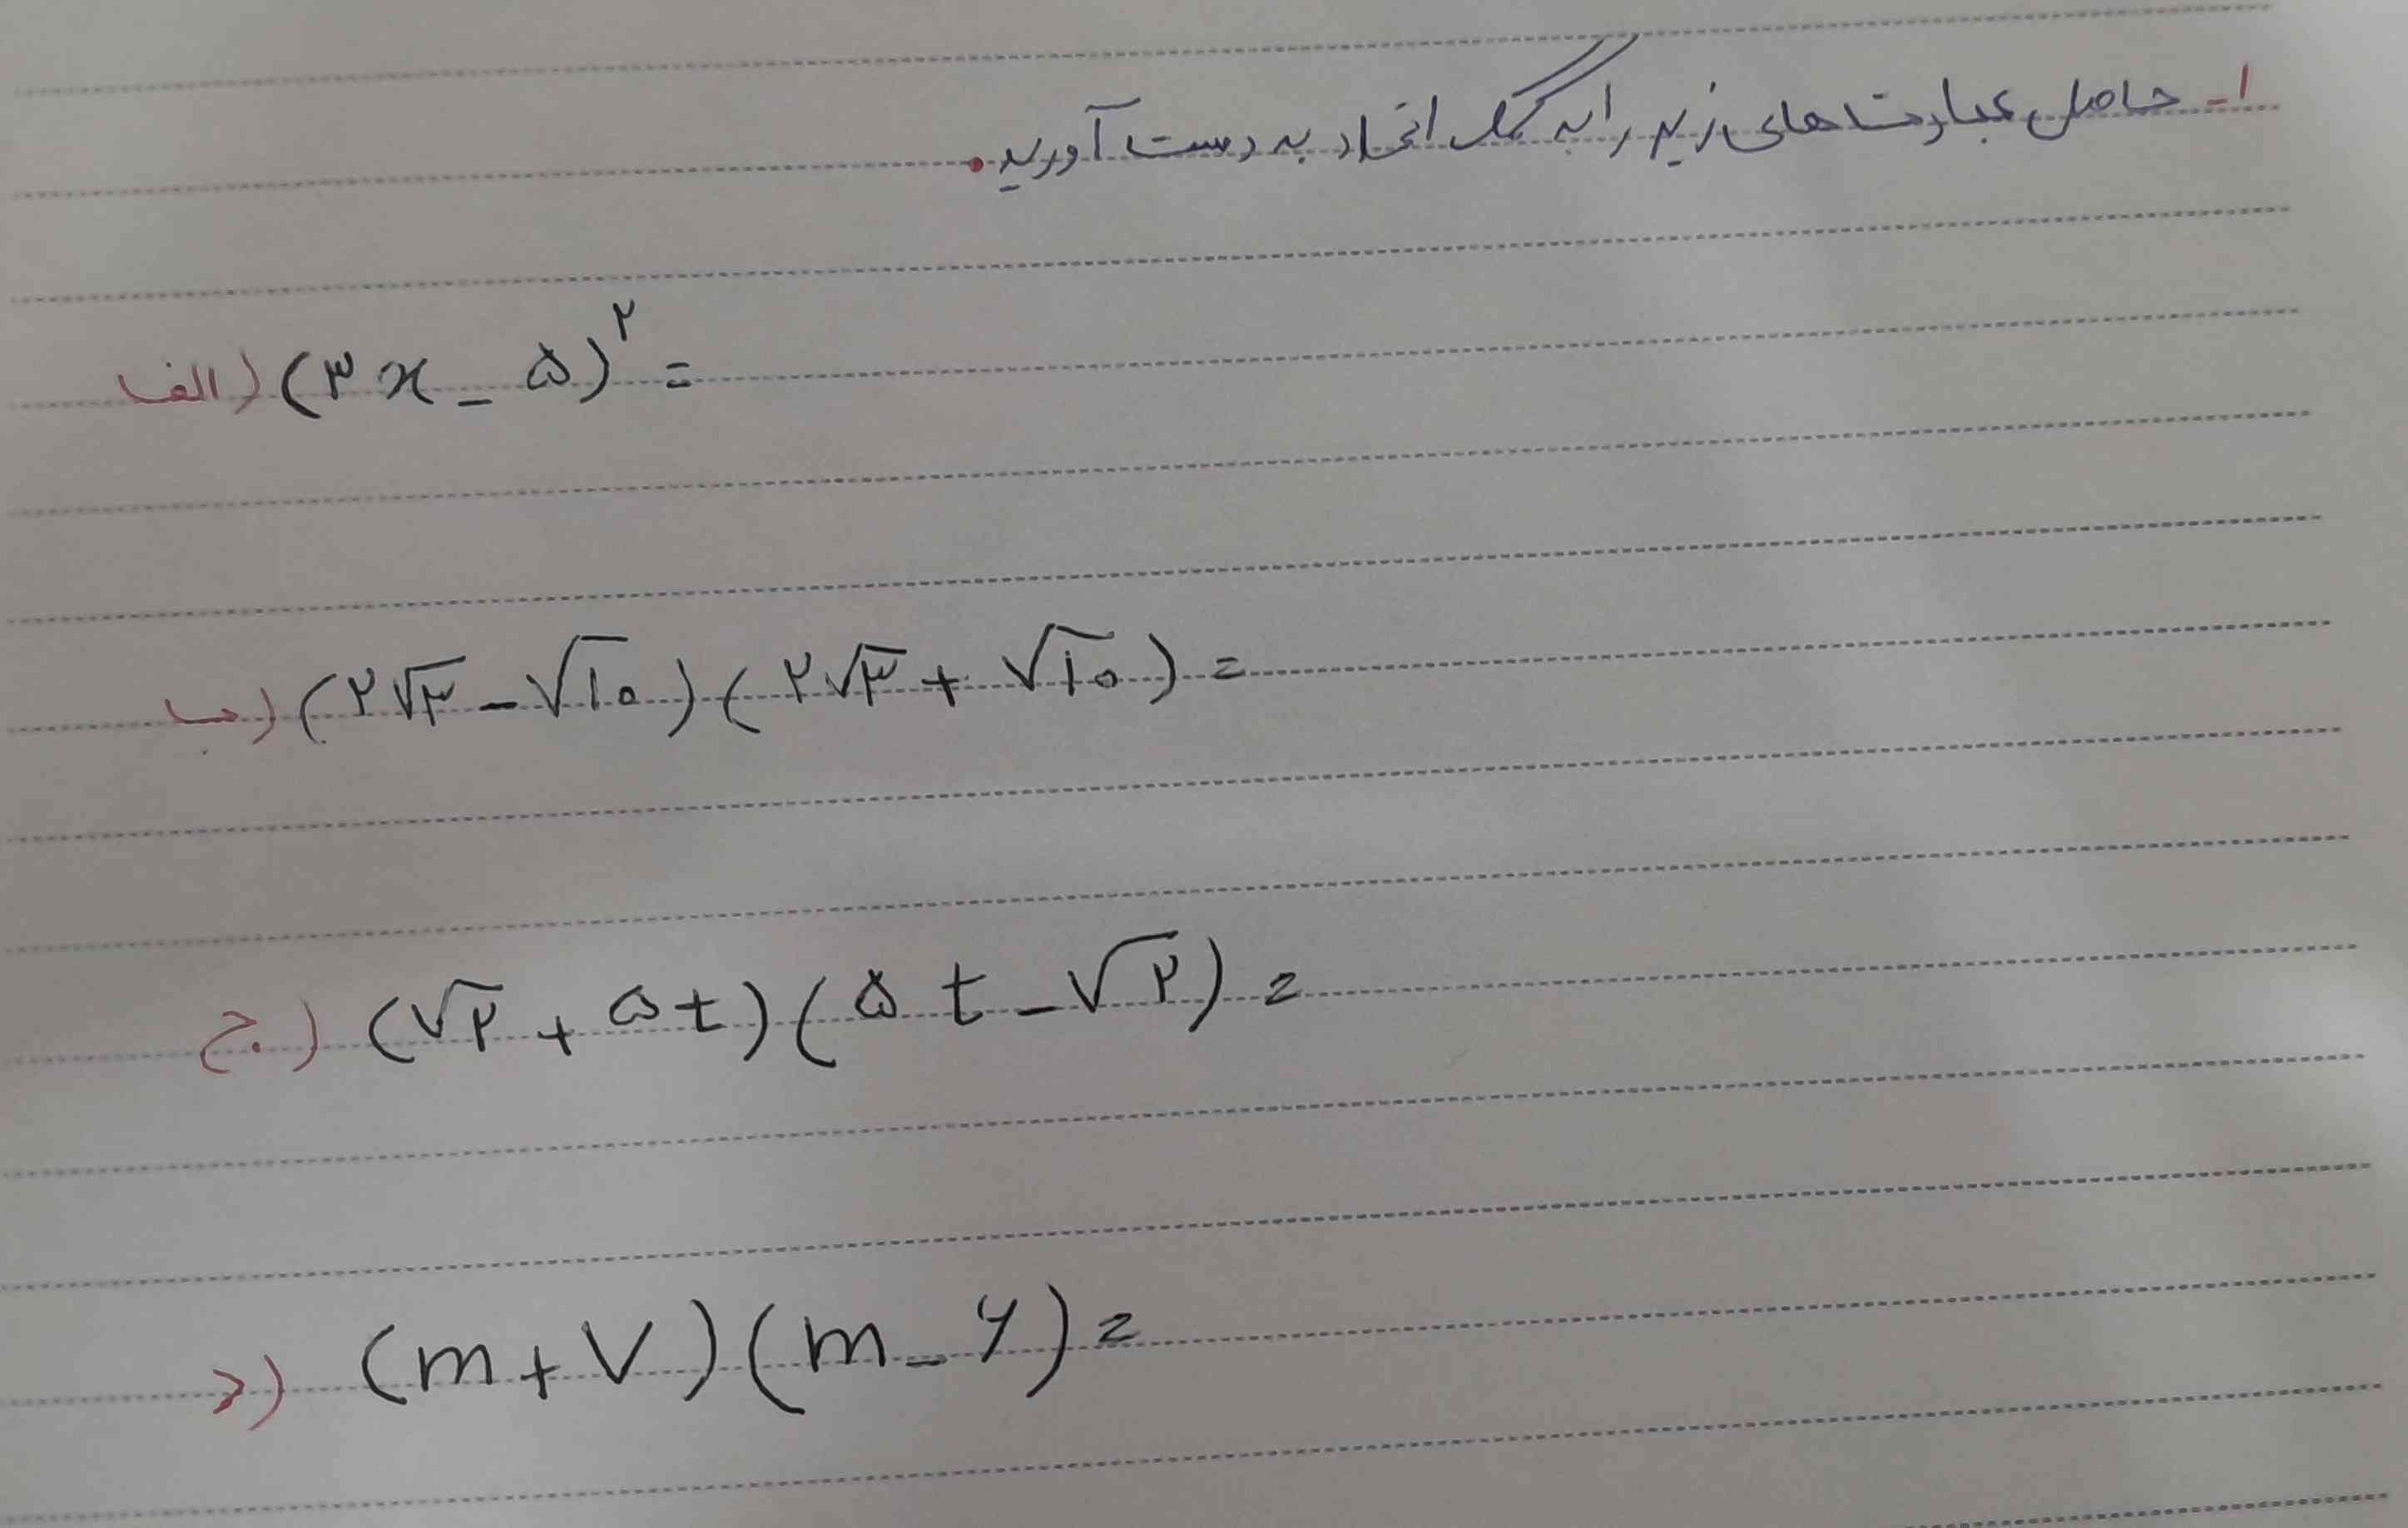 ۱- حاصل عبارت های زیر را به کمک اتحاد به دست آورید.
الف) (۳x - ۵)^۲ =
ب) (۲√۳ - √۱۰)(۲√۳ + √۱۰) =
ج) (√۲ + ۵t)(۵t - √۲) =
د) (m + ۷)(m - ۶) =